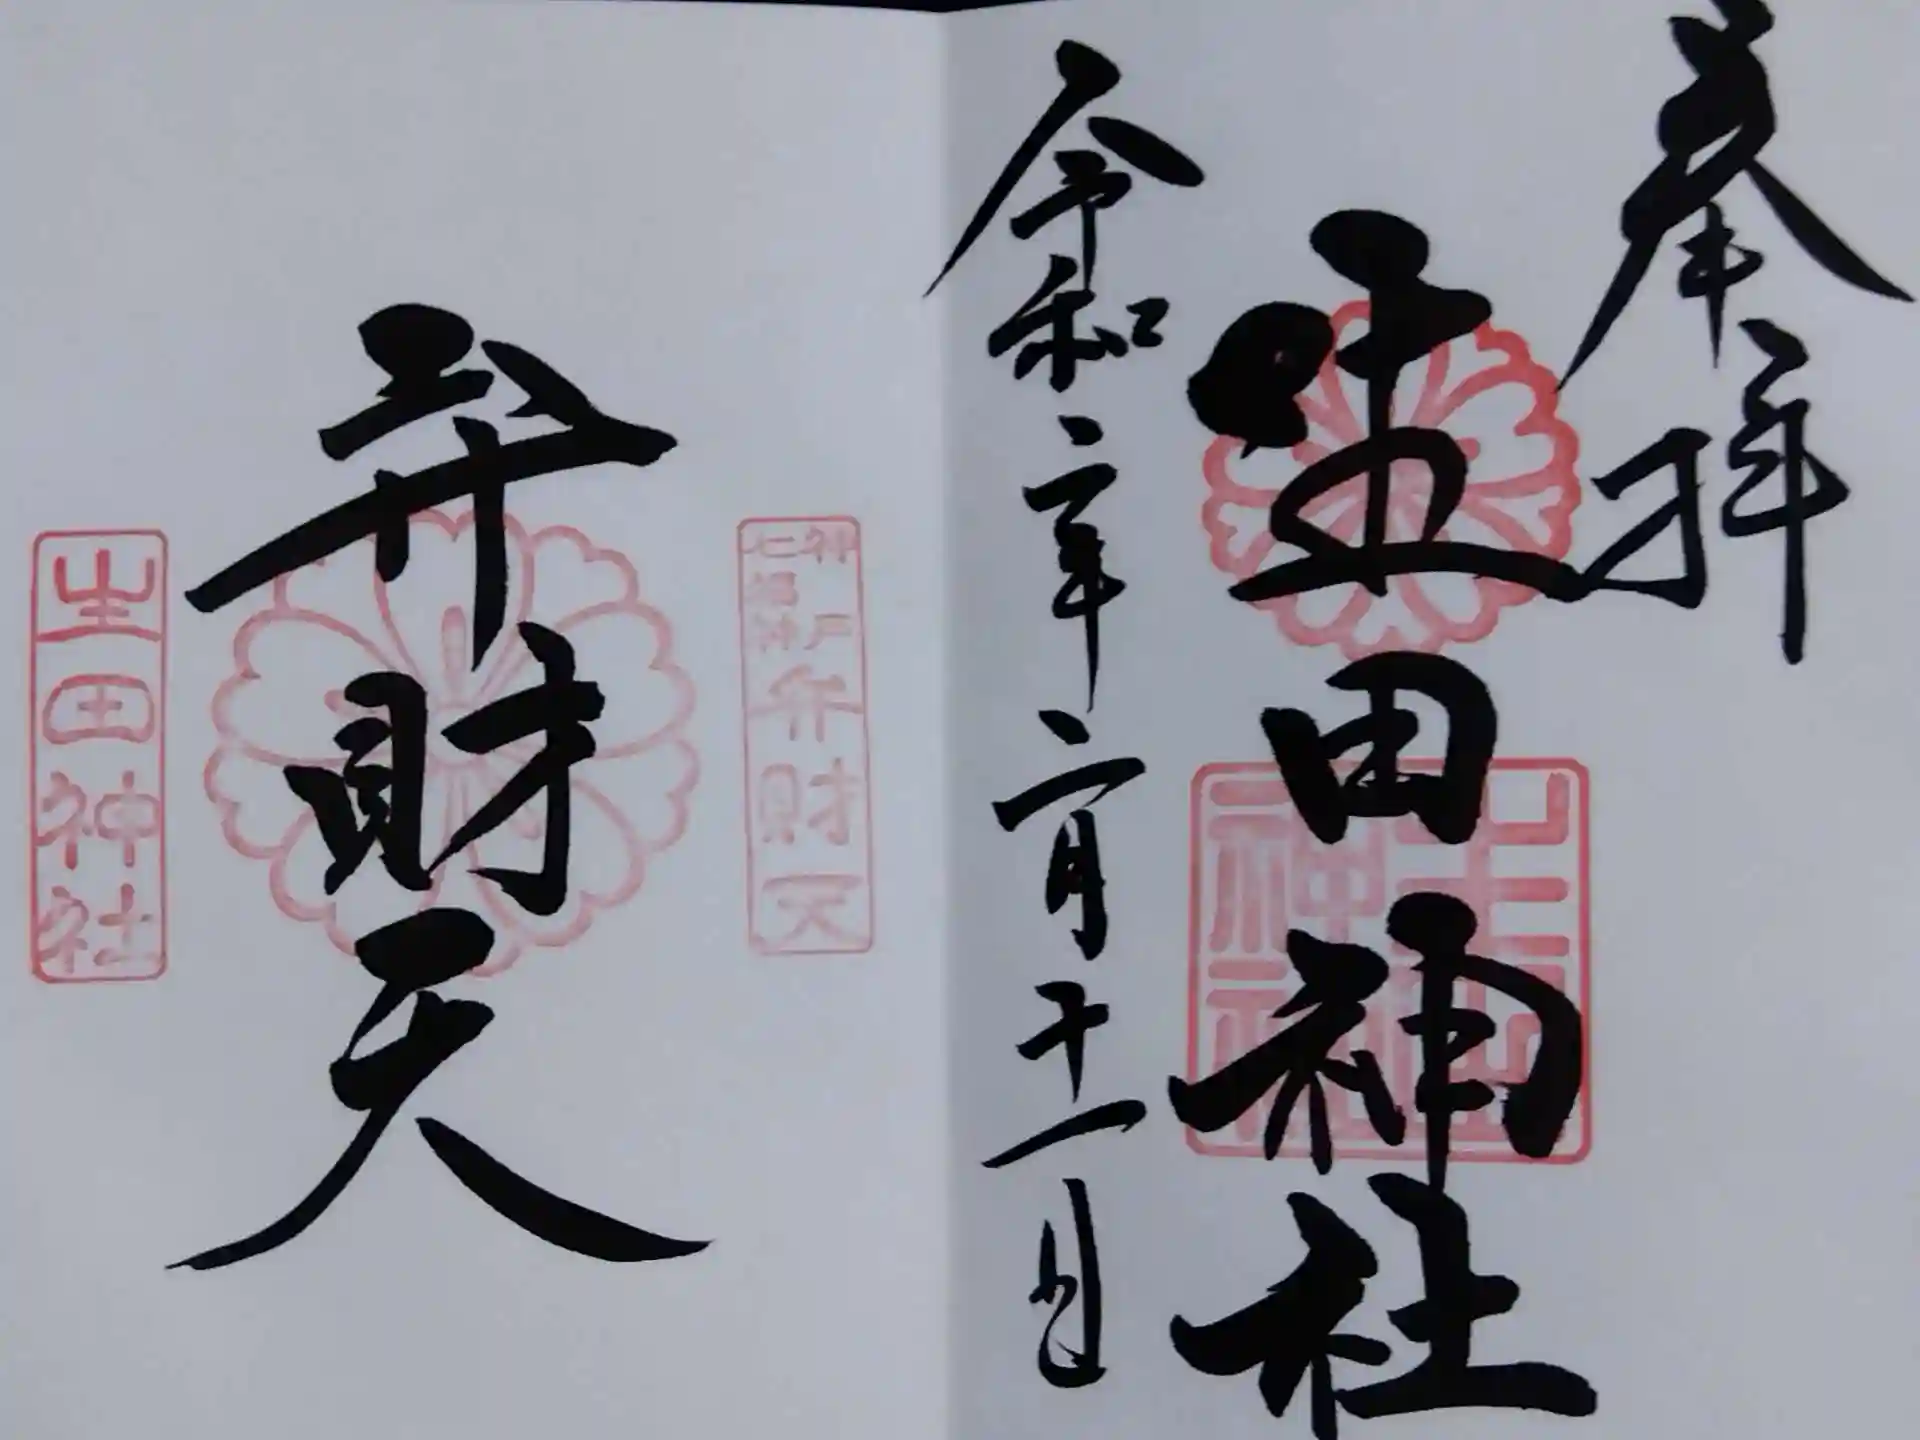 奉拝
生田神社
生田神社
令和二年二月十一日
神戸
七福神
弁財天
弁財天
生田神社